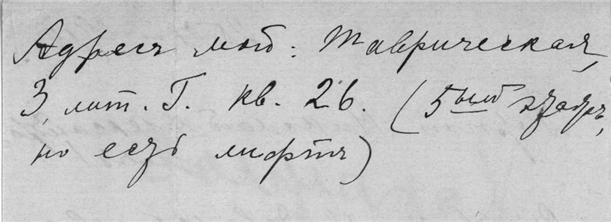 Адресъ мой: Таврическая,
3, лит. Г. кв. 26. (5ый этажъ,
но есть лифтъ)